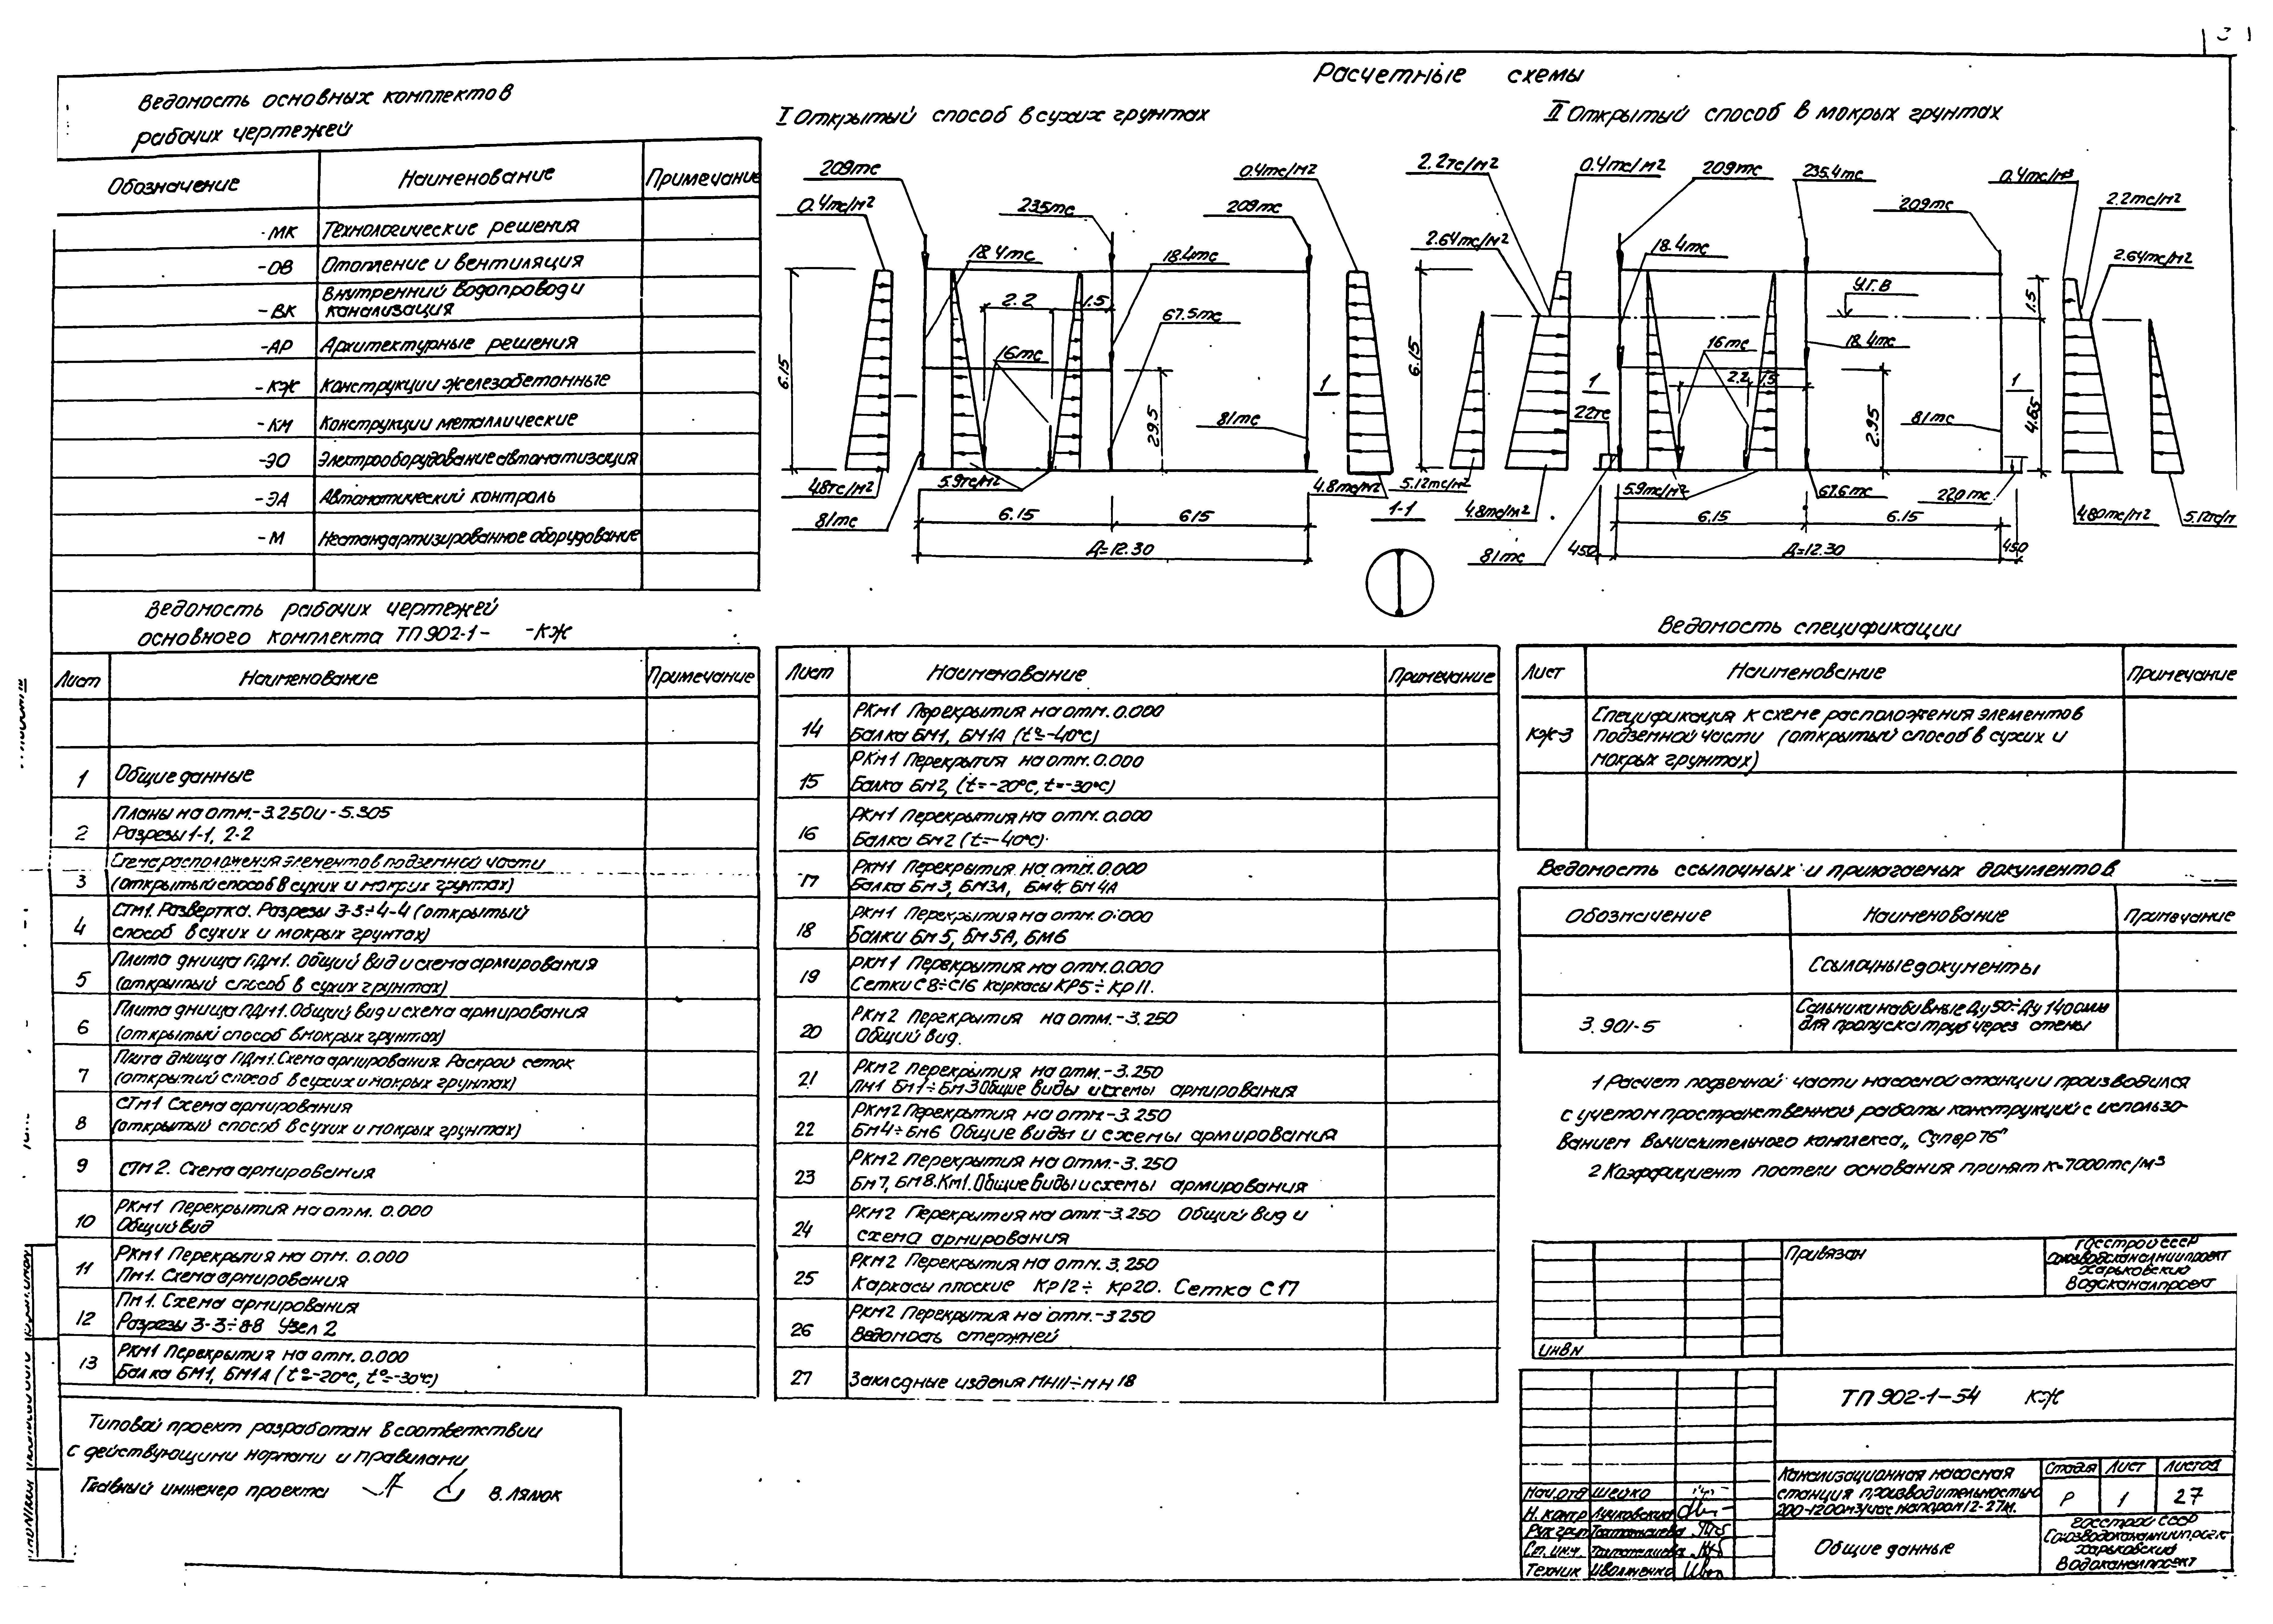 3
Ведомость основных комплектов
рабочих чертежей
Обозначение Наименование Примечание
-МК Технологические решения
-ОВ Отопление и вентиляция
-ВК Внутренний водопровод и
канализация
-АР Архитектурные решения
-КЖ Конструкции железобетонные
-КМ Конструкции металлические
-ЭО Электрооборудование автоматизация
-ЭА Автоматический контроль
-М Нестандартизированное оборудование
Расчетные схемы
I Открытый способ в сухих грунтах
209тс
0.4тс/м2
23.5тс
209тс
0.4тс/м2
18.4тс
18.4тс
2.2
1.5
67.5тс
16тс
6.15
29.5
81тс
1
4.8тс/м2
5.9тс/м2
4.8тс/м2
81тс
6.15
615
Д=12.30
1-1
II Открытый способ в мокрых грунтах
2.2тс/м2
0.4тс/м2
209тс
235.4тс
0.4тс/м3
209тс
2.2тс/м2
2.64тс/м2
18.4тс
2.64тс/м2
У.Г.В
1.5
6.15
16тс
18.4тс
2.2
1.5
1
1
22тс
2.95
81тс
4.65
5.12тс/м2
4.8тс/м2
5.9тс/м2
67.6тс
220тс
4.80тс/м2
5.12тс/м
81тс
450
6.15
6.15
Д=12.30
450
Ведомость рабочих чертежей
основного комплекта ТП 902-1- -КЖ
Лист Наименование Примечание
1 Общие данные
2 Планы на отм.-3.250и-5.305
Разрезы 1-1, 2-2
3 Схема расположения элементов подземной части
(открытый способ в сухих и мокрих грунтах)
4 СТм1. Развертка. Разрезы 3-3÷4-4 (открытый
способ в сухих и мокрых грунтах)
5 Плита днища ПДм1. Общий вид и схема армирования
(открытый способ в сухих грунтах)
6 Плита днища ПДм1. Общий вид и схема армирования
(открытый способ в мокрых грунтах)
7 Плита днища ПДм1. Схема армирования Раскрой сеток
(открытий способ в сухих и мокрых грунтах)
8 СТм1 Схема армирования
(открытый способ в сухих и мокрых грунтах)
9 СТм2. Схема армирования
10 РКм1 Перекрытия на отм. 0.000
Общий вид
11 РКм1 Перекрытия на отм. 0.000
Пм1. Схема армирования
12 Пм1. Схема армирования
Разрезы 3-3÷8-8 Узел 2
13 РКм1 Перекрытия на отм. 0.000
Балка БМ1, БМ1А (t°=-20°с, t°=-30°с)
Лист Наименование Примечание
14 РКм1 Перекрытия на отм. 0.000
Балка БМ1, БМ1А (t°=-40°с)
15 РКм1 Перекрытия на отм. 0.000
Балка Бм2, (t=-20°с, t=-30°с)
16 РКм1 Перекрытия на отм. 0.000
Балка Бм2 (t=-40°с)
17 РКм1 Перекрытия на отм. 0.000
Балка Бм3, БМ3А, БМ4, БМ4А
18 РКм1 Перекрытия на отм. 0.000
Балки Бм5, Бм5А, БМ6
19 РКм1 Перекрытия на отм. 0.000
Сетки С8÷С16 каркасы КР5÷КР11.
20 РКм2 Перекрытия на отм.-3.250
Общий вид.
21 РКм2 Перекрытия на отм.-3.250
Пм1 Бм1÷Бм3 Общие виды и схемы армирования
22 РКм2 Перекрытия на отм-3.250
Бм4÷Бм6 Общие виды и схемы армирования
23 РКм2 Перекрытия на отм.-3.250
Бм7, Бм8. Км1. Общие виды и схемы армирования
24 РКм2 Перекрытия на отм.-3.250 Общий вид и
схема армирования
25 РКм2 Перекрытия на отм. 3.250
Каркасы плоские Кр12÷ Кр20. Сетка С17
26 РКм2 Перекрытия на отм.-3250
Ведомость стержней
27 Закладные изделия МН11÷МН18
Ведомость спецификации
Лист Наименование Примечание
КЖ-3 Спецификация к схеме расположения элементов
подземной части (открытый способ в сухих и
мокрых грунтах)
Ведомость ссылочных и прилагаемых документов
Обозначение Наименование Примечание
Ссылочные документы
3.901-5 Сальники набивные Ду50÷Ду1400мм
для пропуска труб через стены
1 Расчет подземной части насосной станции производился
с учетом пространственной работы конструкций с использо-
ванием вычислительного комплекса „Супер 76"
2 Коэффициент постели основания принят к=7000тс/м3
Привязан
Госстрой СССР
Союзводоканалниипроект
Харьковский
Водоканалпроект
ИНВ№
ТП 902-1-54 КЖ
Канализационная насосная
станция производительностью
200-1200м3/час напором 12-27м.
Стадия Лист Листов
Р 1 27
Нач.отд Шейко
Н. контр
Рук груп
Ст. инж.
Техник
Общие данные
Госстрой СССР
Союзводоканалниипроект
Харьковский
Водоканалпроект
Типовой проект разработан в соответствии
с действующими нормами и правилами
Главный инженер проекта В. Лялюк